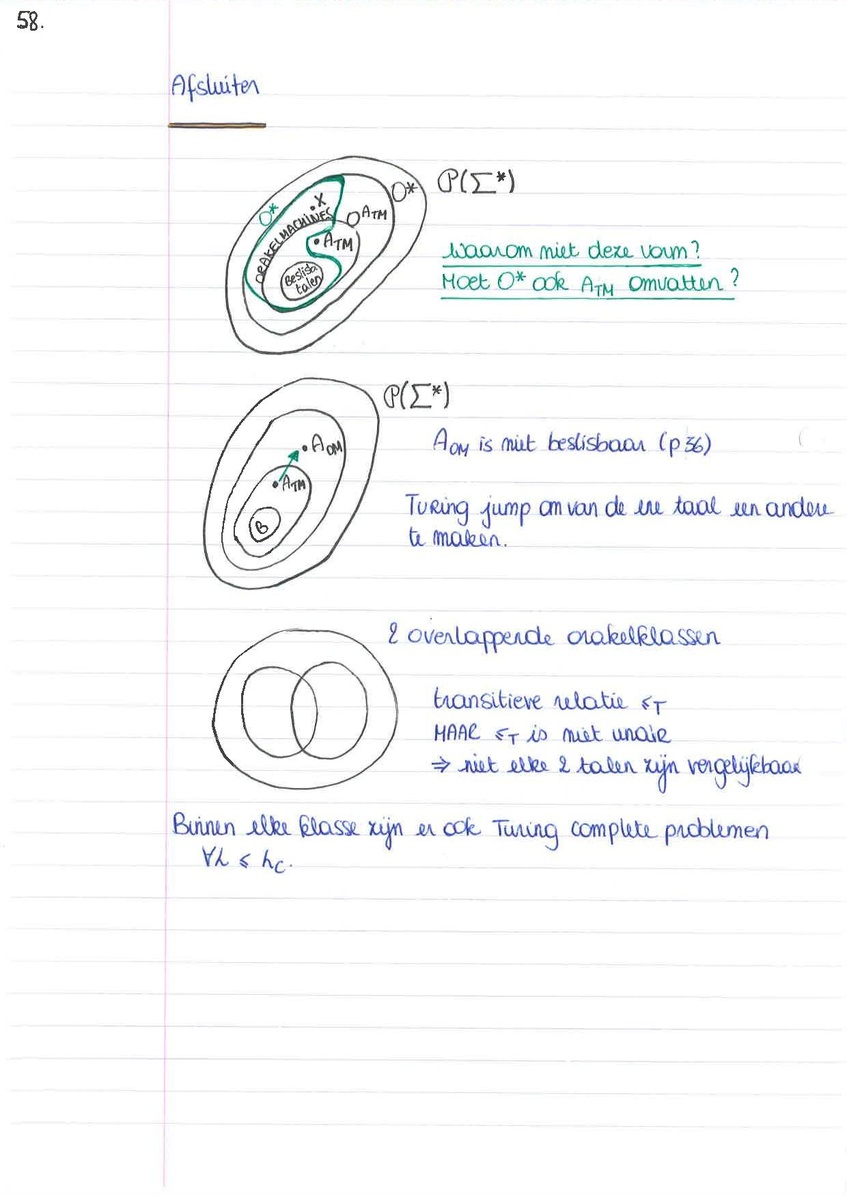 58.
Afsluiter
P(Σ*)
O*
O*
.X
ORAKELMACHINES
O ATM
• ATM
Beslisb.
talen
Waarom niet deze vorm?
Moet O* ook ATM omvatten?
P(Σ*)
• AOM
• ATM
B
AOM is niet beslisbaar (p 36)
Turing jump om van de ene taal een andere
te maken.
2 overlappende orakelklassen
transitieve relatie ≤T
MAAR ≤T is niet unair
⇒ niet elke 2 talen zijn vergelijkbaar
Binnen elke klasse zijn er ook Turing complete problemen
∀L ≤ Lc.